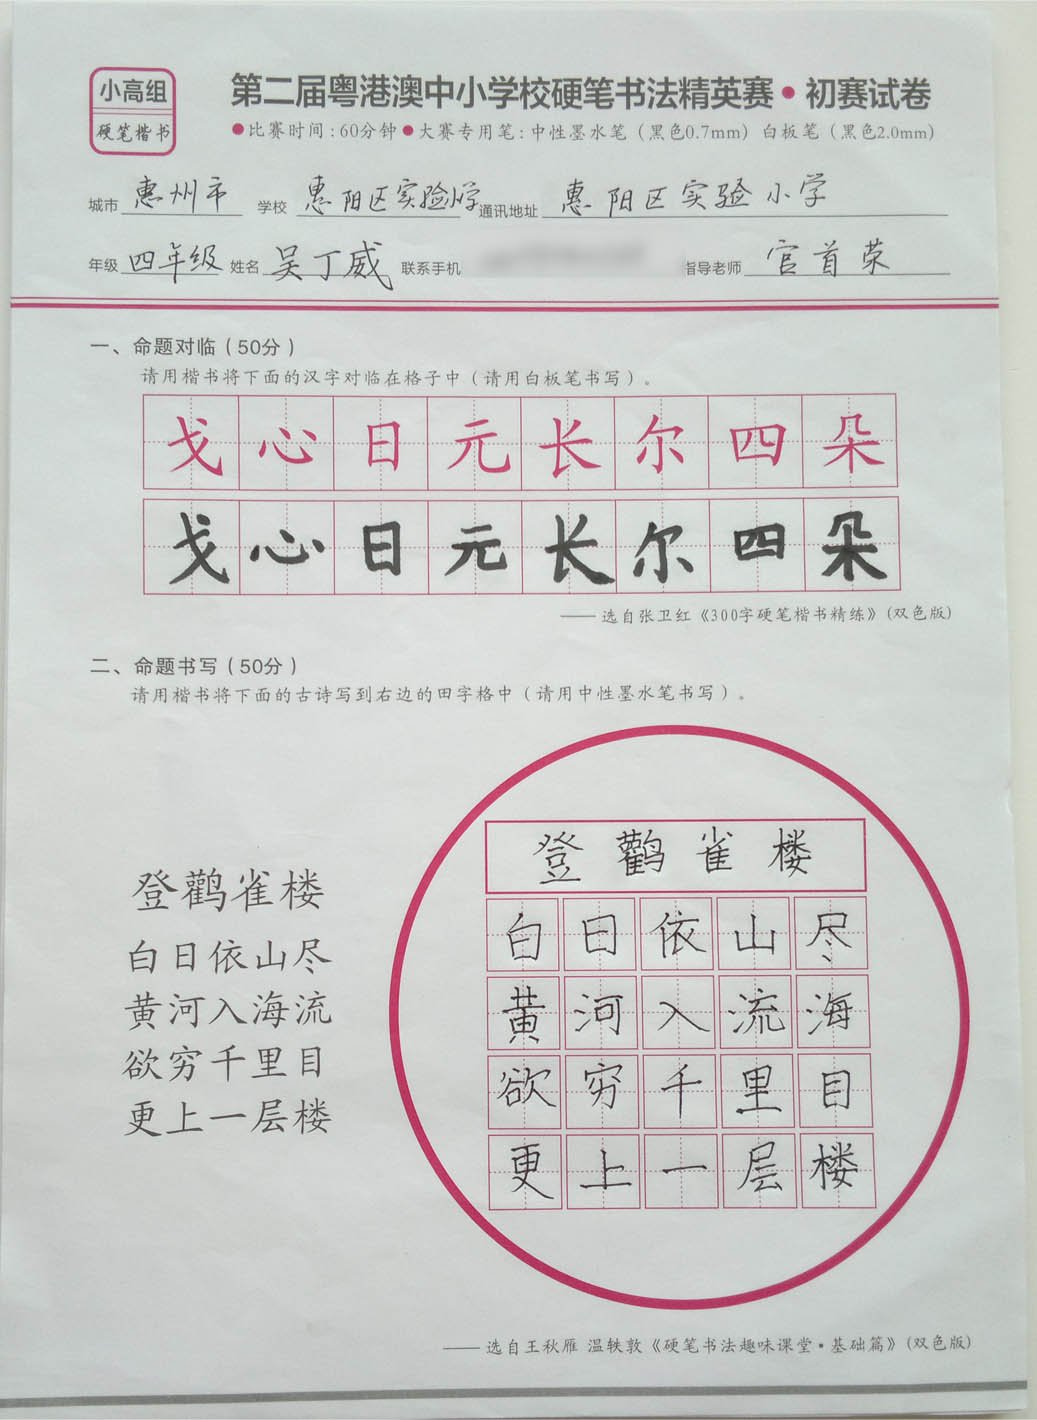 小高组
硬笔楷书
第二届粤港澳中小学校硬笔书法精英赛·初赛试卷
●比赛时间:60分钟●大赛专用笔:中性墨水笔（黑色0.7mm）白板笔（黑色2.0mm）
城市 惠州市 学校 惠阳区实验小学 通讯地址 惠阳区实验小学
年级 四年级 姓名 吴丁威 联系手机 指导老师 官首荣
一、命题对临（50分）
请用楷书将下面的汉字对临在格子中（请用白板笔书写）。
戈心日元长尔四朵
戈心日元长尔四朵
—— 选自张卫红《300字硬笔楷书精练》(双色版)
二、命题书写（50分）
请用楷书将下面的古诗写到右边的田字格中（请用中性墨水笔书写）。
登鹳雀楼
白日依山尽
黄河入海流
欲穷千里目
更上一层楼
登鹳雀楼
白日依山尽
黄河入流海
欲穷千里目
更上一层楼
—— 选自王秋雁 温轶敦《硬笔书法趣味课堂·基础篇》(双色版)